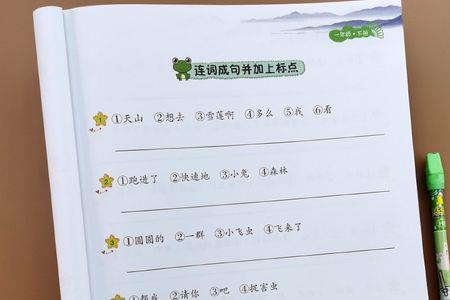 一年级·下册
连词成句并加上标点
1 ①天山 ②想去 ③雪莲啊 ④多么 ⑤我 ⑥看
2 ①跑进了 ②快速地 ③小兔 ④森林
3 ①圆圆的 ②一群 ③小飞虫 ④飞来了
①帮我 ②请你 ③吧 ④捉害虫